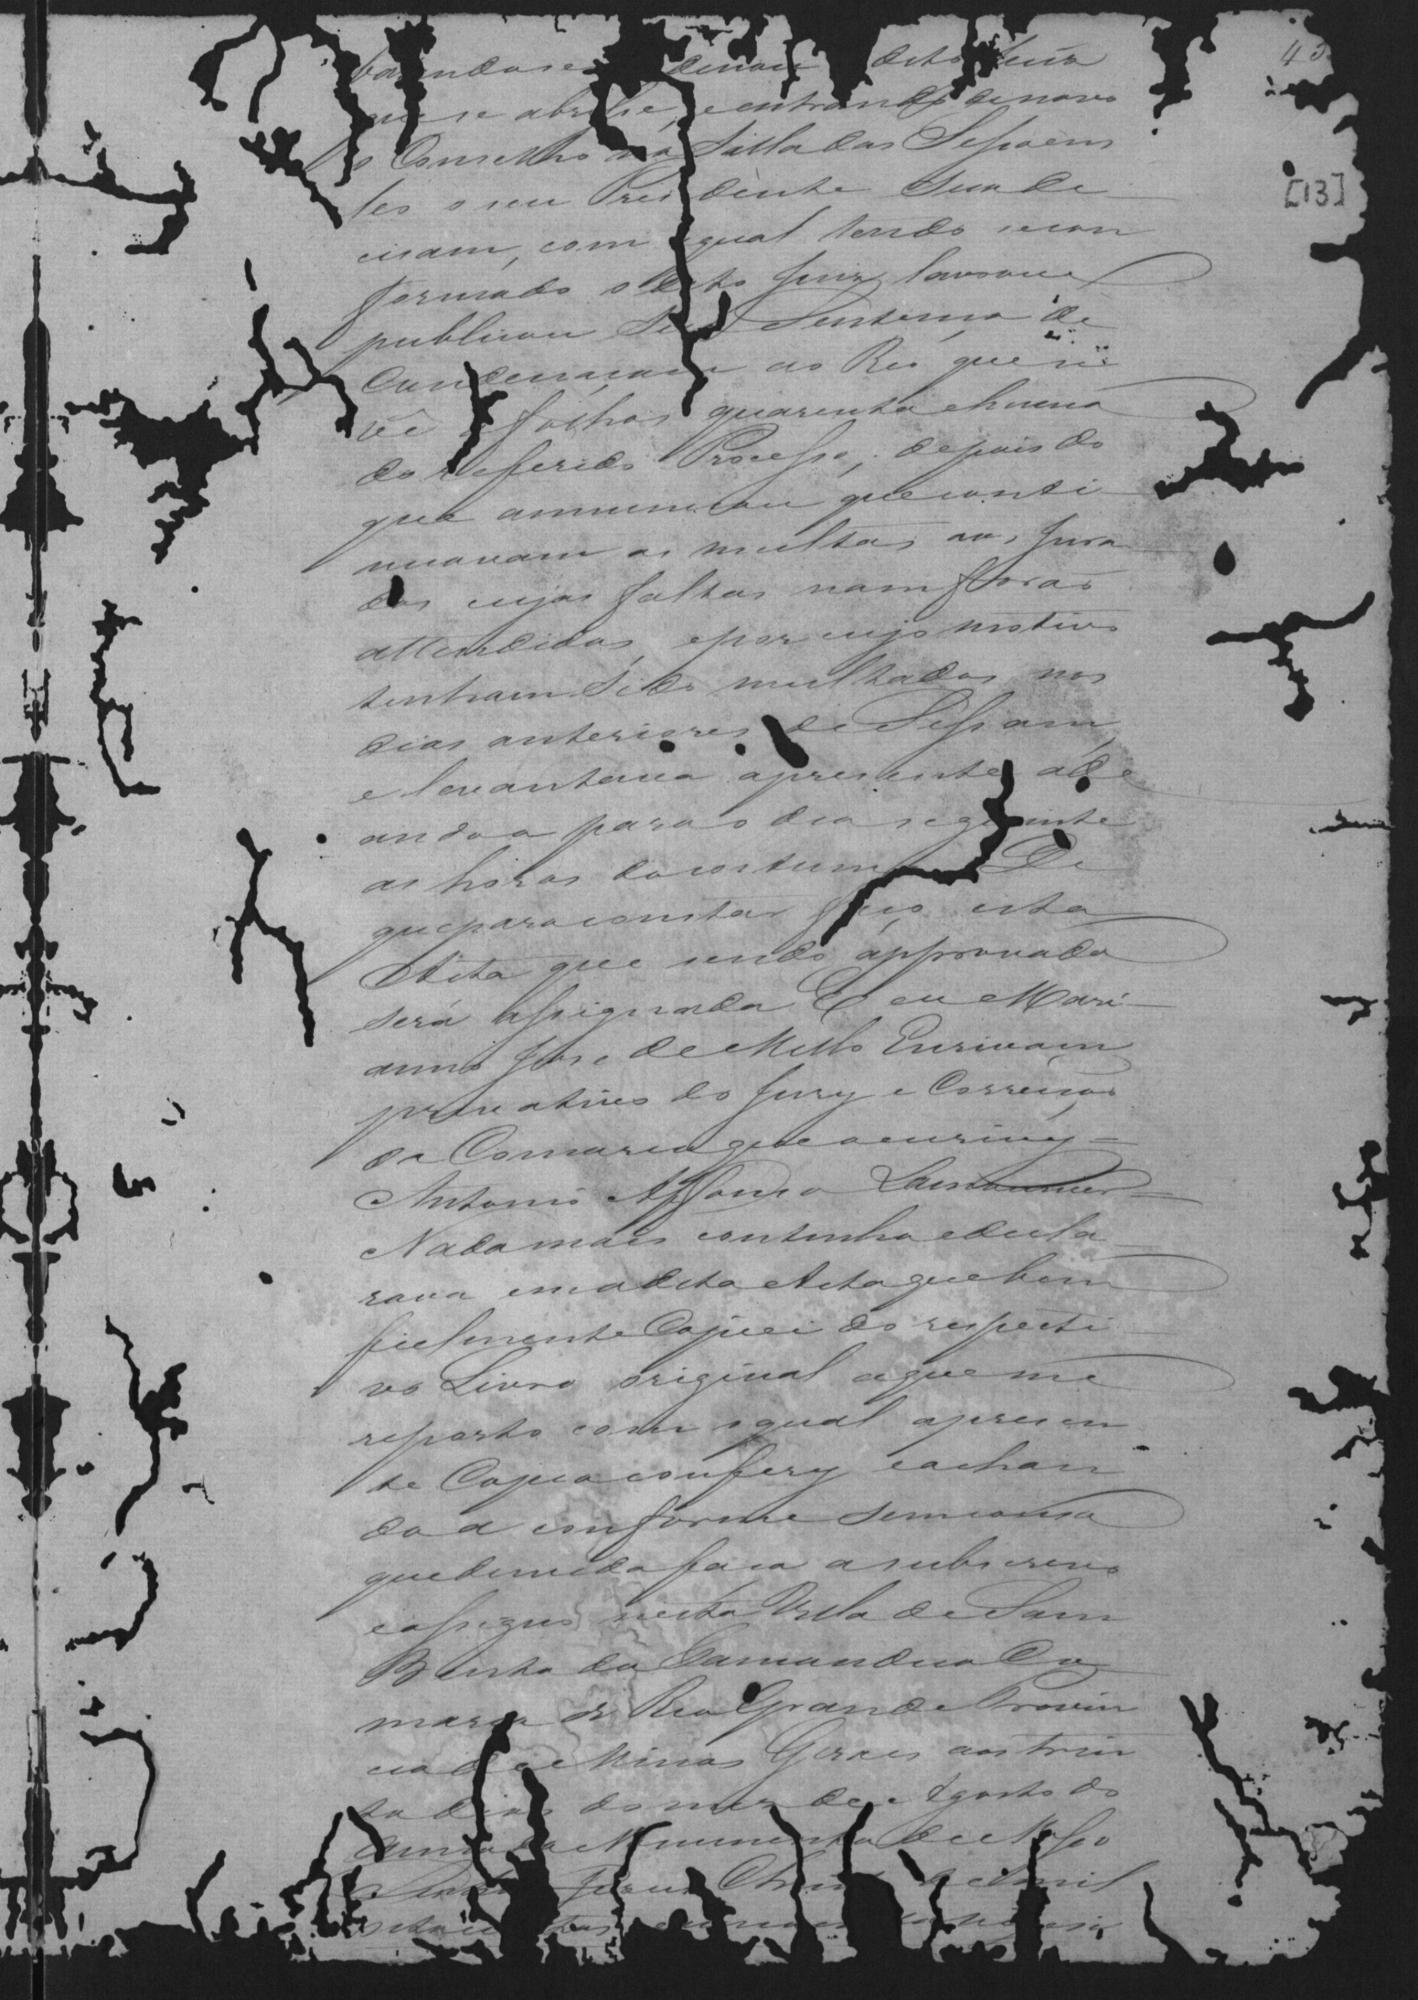 43
[13]
dito Juiz
que se abrisse, e entrando de novo
o Conselho na Salla das Sessoens
leo o seu Presidente Sua De
cisam, com a qual tendo se con
formado o dito Juiz lavrou e
publicou Sua Sentença de
Condenaçam ao Reo que se
vê a folhas quarenta e huma
do referido Processo, depois do
que annunciou que conti
nuavam as multas aos Jura
dos cujas faltas nam foram
attendidas, e por cujo motivo
tinham Sido multados nos
dias anteriores de Sessam,
e levantou a presente addi
ando a para o dia seguinte
as horas do costume. De
que para constar faço esta
Acta que sendo approvada
será assignada E eu Mari
anno Jose de Mello Escrivam
privativo do Jury e Correiçao
da Comarca que a escrevy =
Antonio Affonso Lamounier =
Nada mais continha e decla
rava em a dita Acta que bem
fielmente Copiei do respecti
vo Livro original a que me
reporto com o qual a presen
te Copia confery e achan
do a conforme sem cousa
que duvida faça a subscrevo
e assigno nesta Villa de Sam
Bento do Tamanduá Co
marca do Rio Grande Provin
cia de Minas Geraes aos trin
ta dias do mez de Agosto do
Anno do Nascimento de Nosso
Senhor Jesus Christo de mil
oito centos